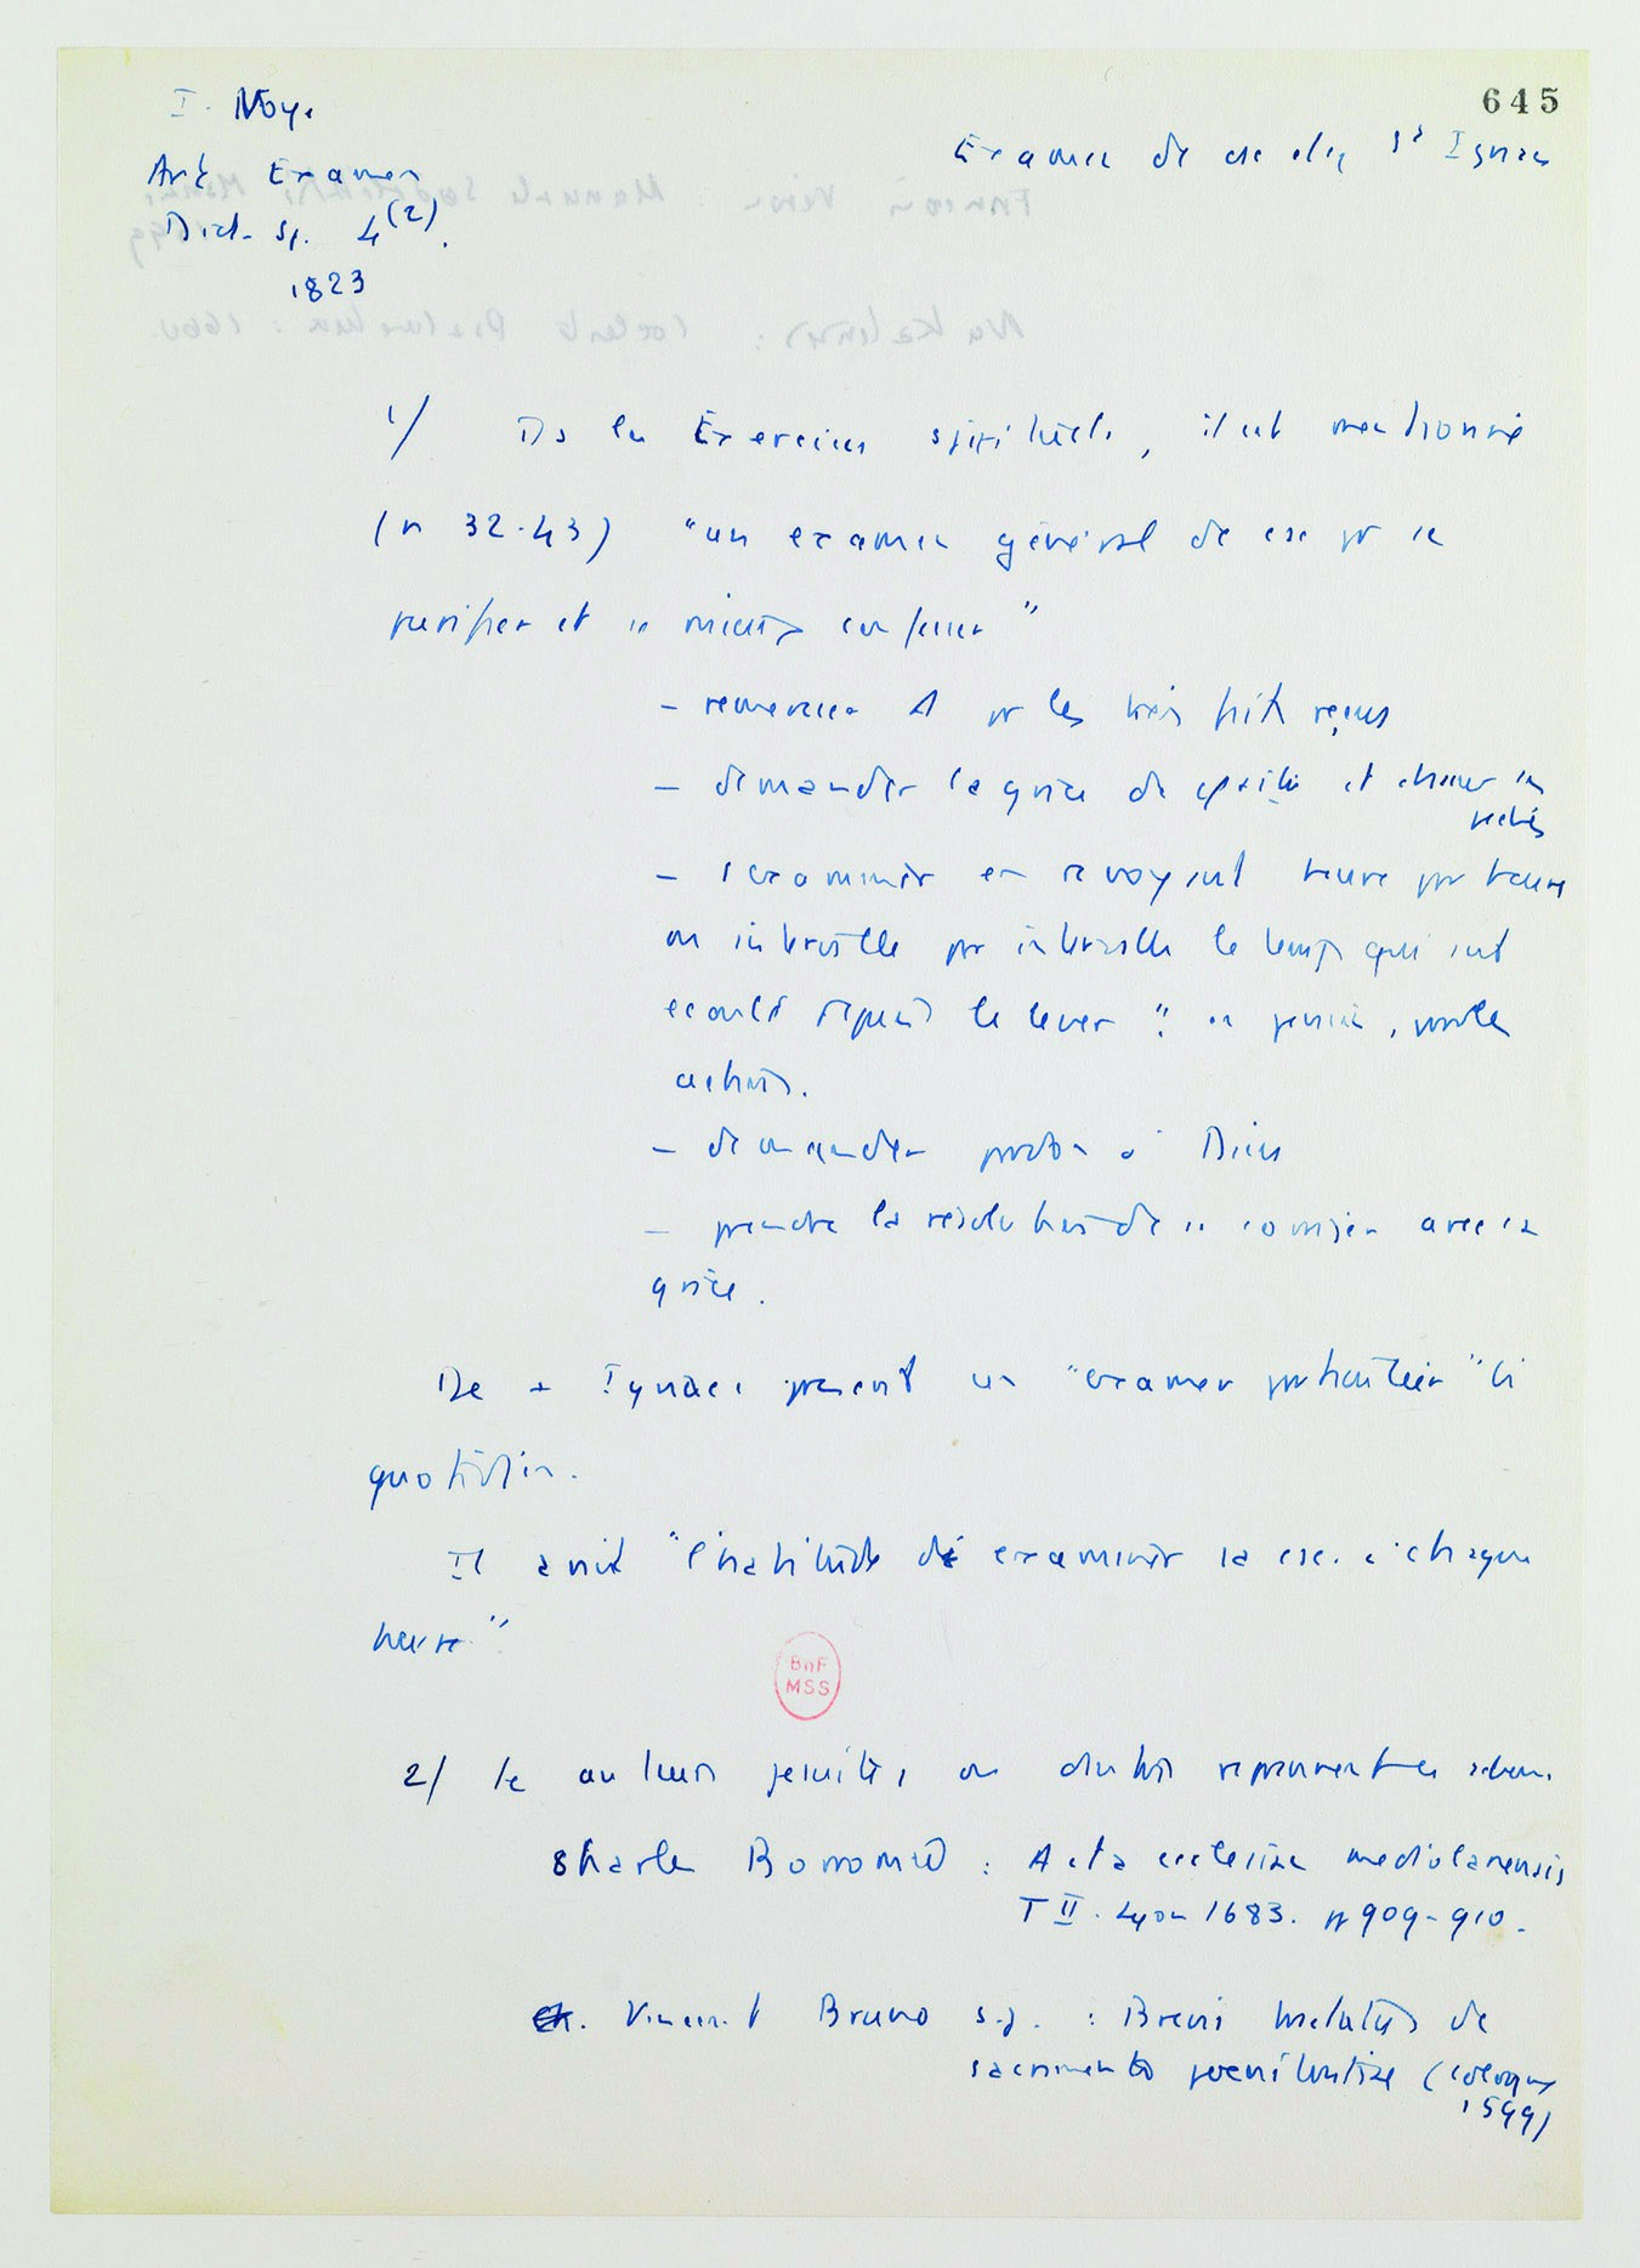 645
I. Noye
Art. Examen
Dict. sp. 4(2).
1823
Examen de csc chez St Ignace
1/ Ds les Exercices spirituels, il est mentionné
(n 32-43) "un examen général de csc pr se
purifier et se mieux confesser"
- remercier pr les bienfaits reçus
- demander la grâce de et chasser les
péchés
- s'examiner en revoyant heure par heure
ou intervalle par intervalle le temps qui s'est
écoulé depuis le lever : pensée, parole
actions.
- demander pardon à Dieu
- prendre la résolution de se corriger avec sa
grâce.
De + Ignace prescrit un "examen particulier"
quotidien.
Il avait "l'habitude de examiner sa csc. à chaque
heure"
BnF
MSS
2/ Le auteurs jésuites, ou
Charles Borromée : Acta ecclesiae mediolanensis
T II. Lyon 1683. pp 909-910.
Vincent Bruno s.j. : Brevis tractatus de
sacramento poenitentiae (Cologne
1599)